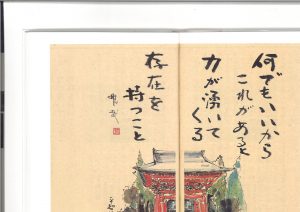 何でもいいから
これがあると
力が湧いて
くる
存在を
持つこと